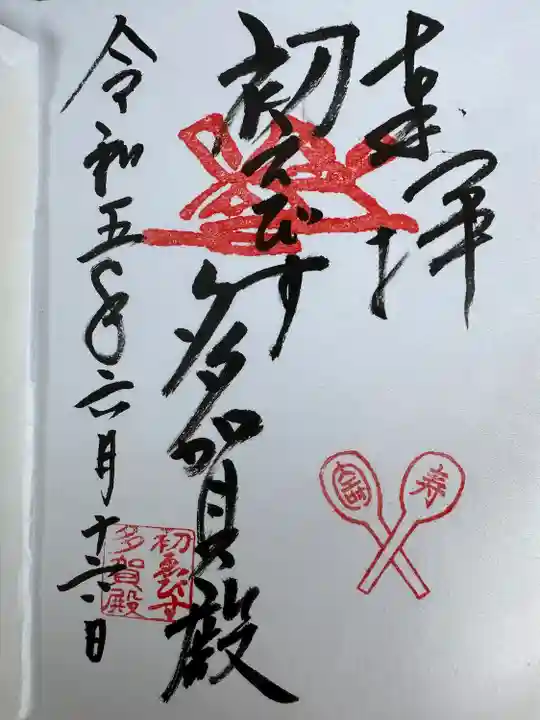 奉拝
初えびす
多賀殿
令和五年六月十六日
初ゑびす
多賀殿
寿